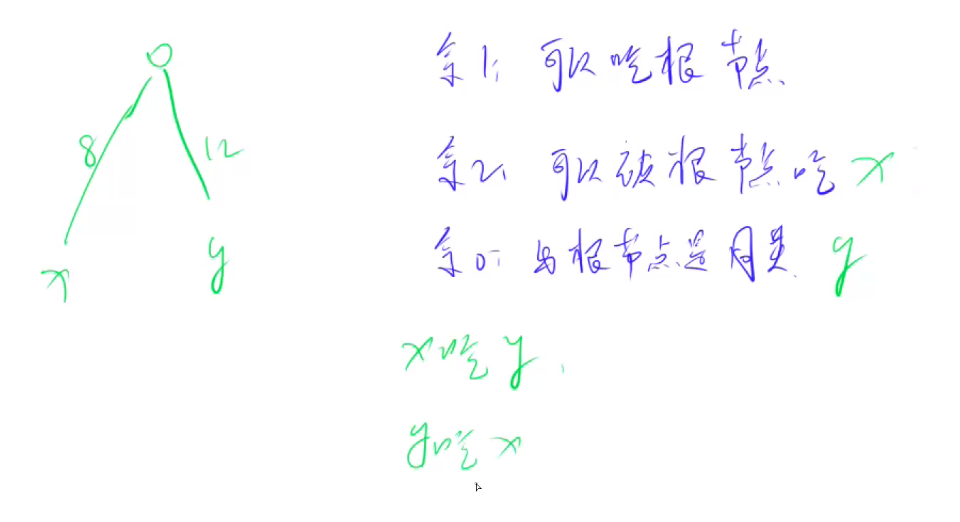 余1: 可以吃根节点
8
12
余2: 可以被根节点吃 x
x
y
余0: 与根节点是同类 y
x吃y,
y吃x